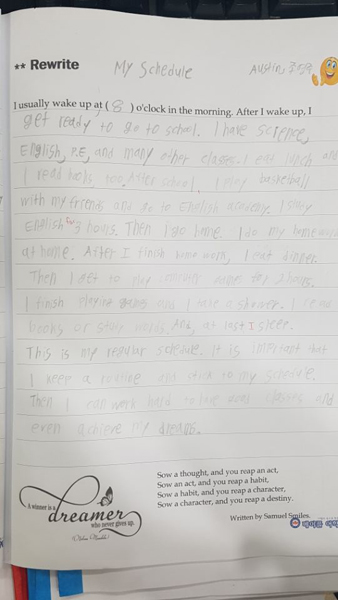 ★★ Rewrite
My Schedule
Austin, 3-5g
I usually wake up at ( 8 ) o'clock in the morning. After I wake up, I
get ready to go to school. I have science,
English, P.E, and many other classes. I eat lunch and
I read books, too. After school, I play basketball
with my friends and go to English academy. I study
English 3 hours. Then I go home. I do my homework
at home. After I finish homework, I eat dinner.
Then I get to play computer games for 2 hours.
I finish playing games and I have a shower. I read
books or study words. And, at last I sleep.
This is my regular schedule. It is important that
I keep a routine and stick to my schedule.
Then I can work hard to have good classes and
even achieve my dreams.
A winner is a
dreamer
who never gives up.
Sow a thought, and you reap an act,
Sow an act, and you reap a habit,
Sow a habit, and you reap a character,
Sow a character, and you reap a destiny.
Written by Samuel Smiles.